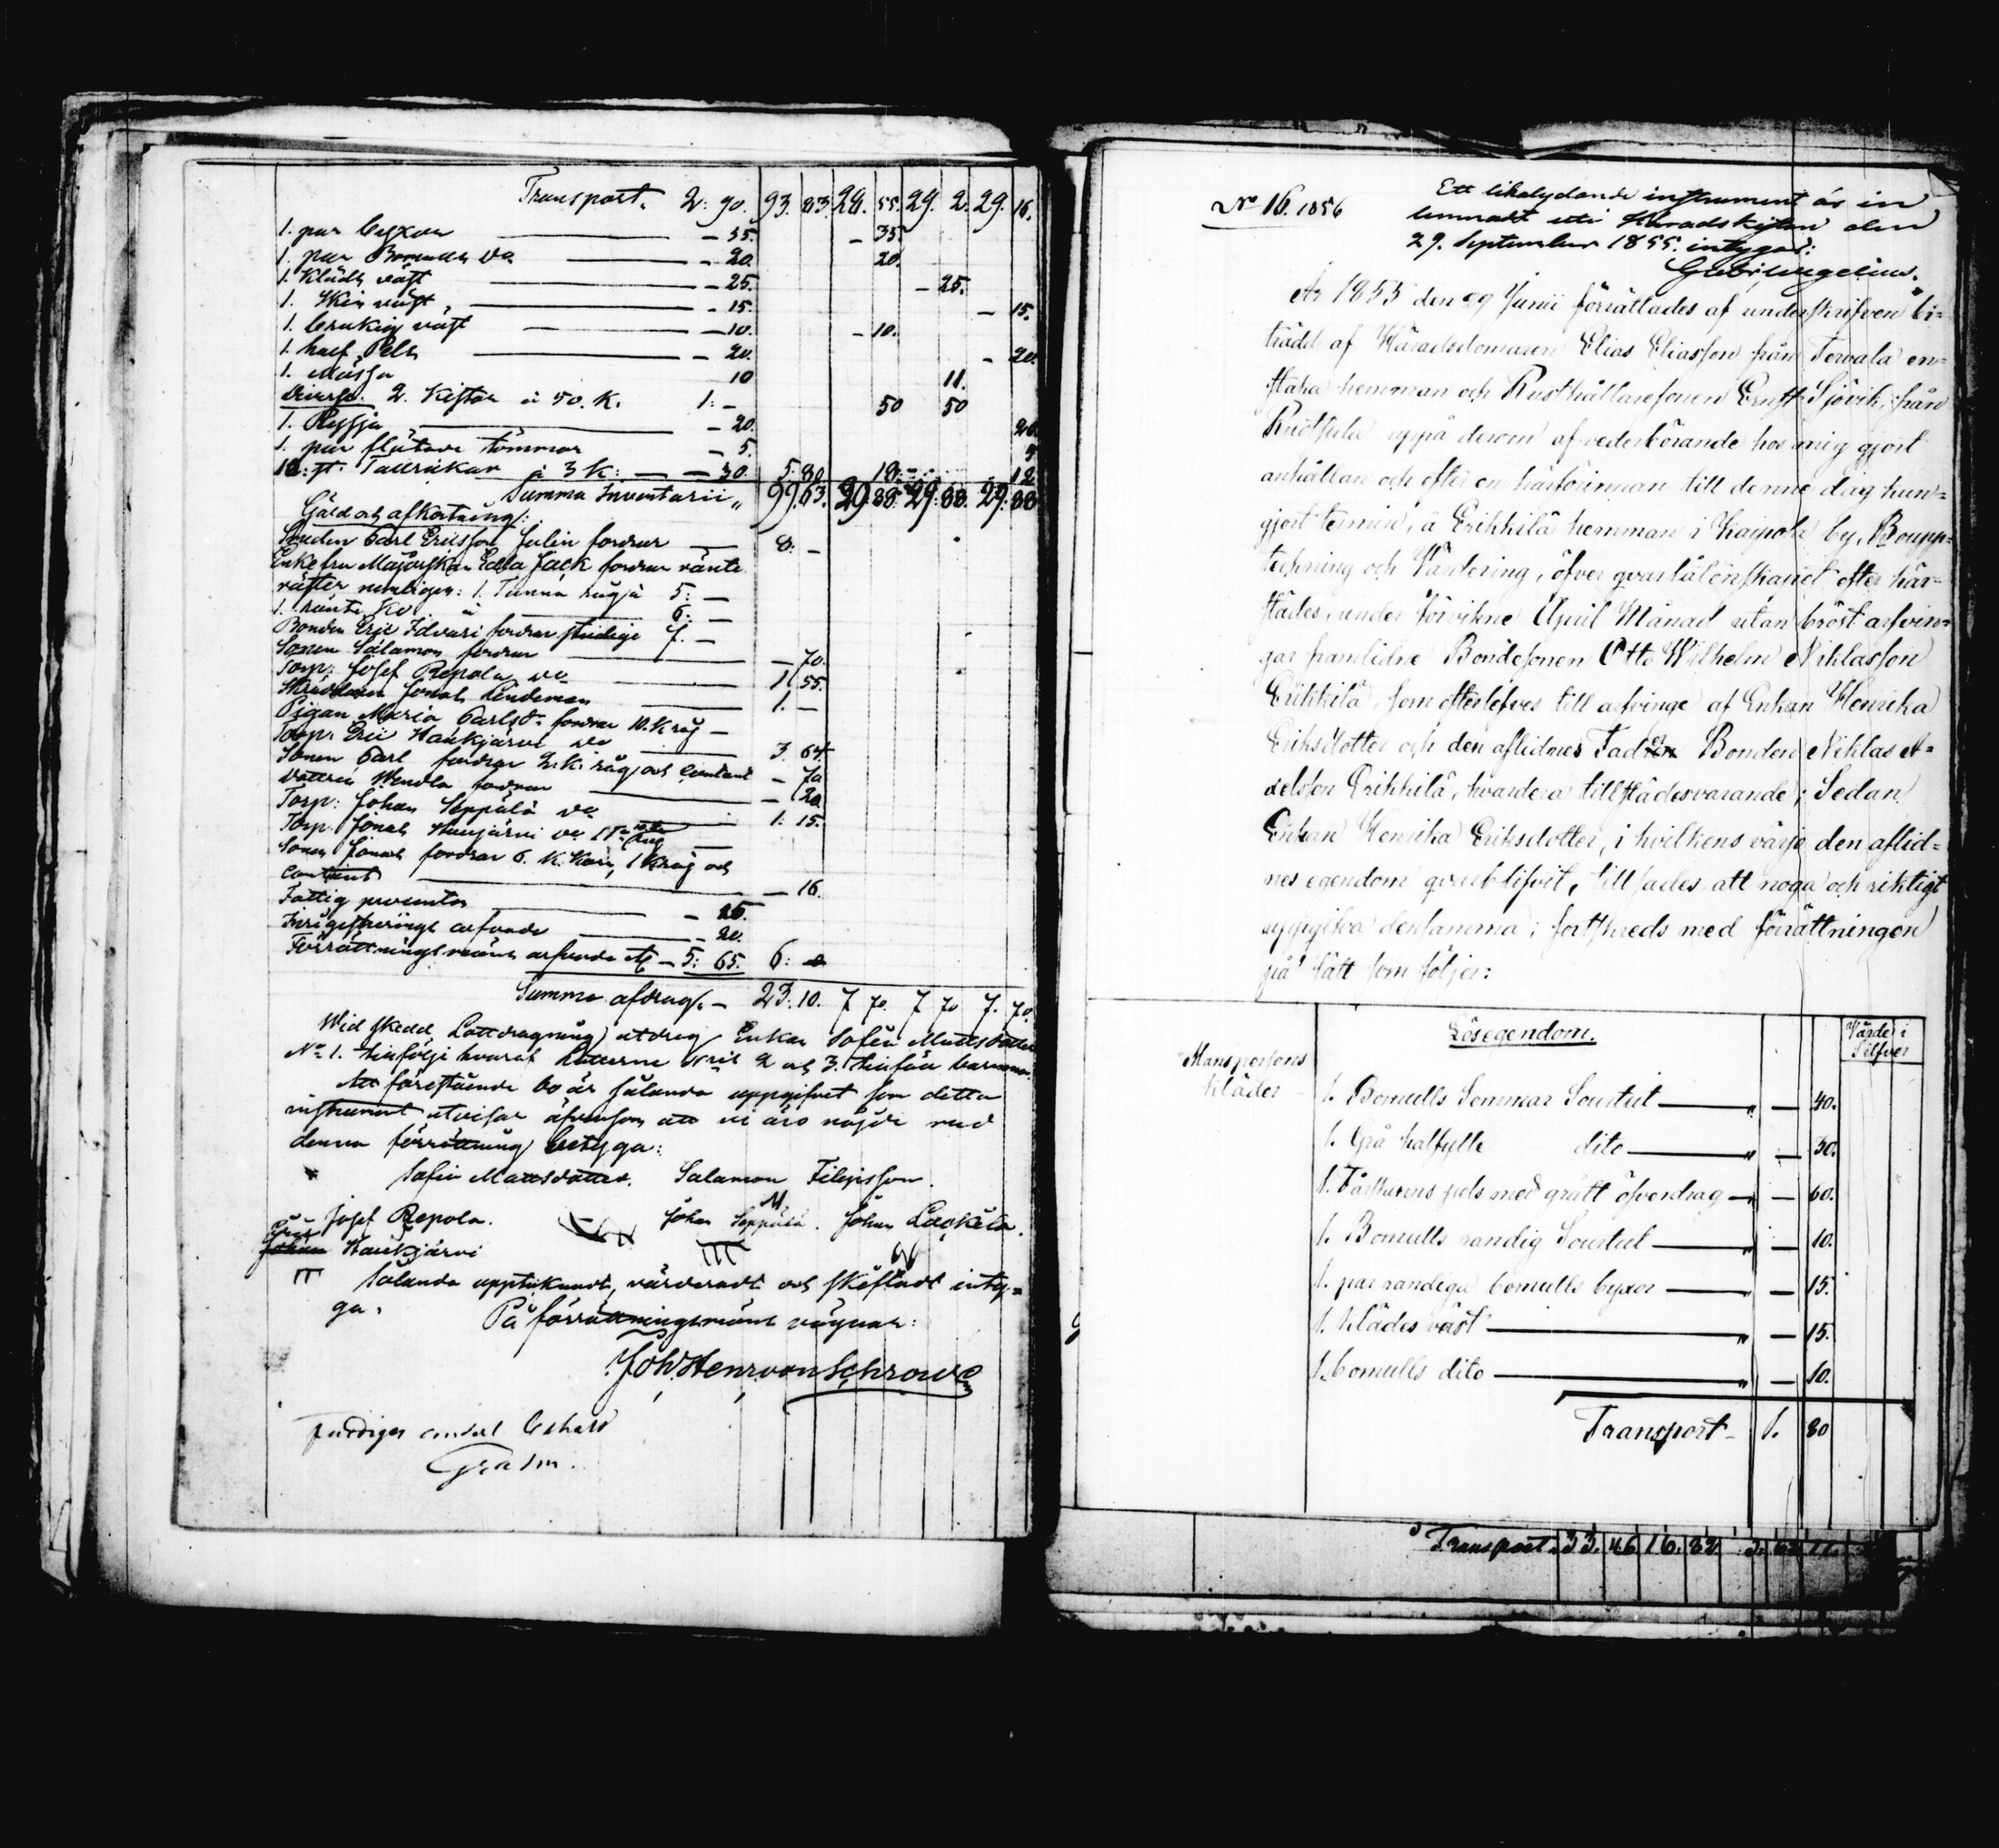 Transport. 2: 90. 93. 83. 28. 55. 29. 2. 29. 16.
1. par byxor — 35. — 35.
1. par Bomulls do — 20. 20.
1. Klädes väst — 25. — 25.
1. Skin väst — 15. — 15.
1. brukig väst — 10. — 10.
1. half Pels — 20. — 20.
1. Mössa 10 11.
Diverse. 2. Kistor á 50. K. 1: — 50 50
1. Ryssja — 20. 20
1. par flätade tömmar — 5. 5
10: st. Tallrikar á 3 K: — 30. 5. 80 18. 12
Summa Inventarii 99. 63. 29 88. 29. 88 29. 88
Gäld och afkortning:
Smeden Carl Ericsson Julin fordrar — 8: —
Enkefru Majorskan Edla Jack fordrar ränte
rätter nemligen: 1. Tunna råg á 5: —
1. ränte Ko á 6: —
Bonden Eric Idvari fordrar 7. —
Sonen Salamon fordrar — 70.
Torp: Josef Repola do 1. 55.
Skräddaren Jonas Lindeman 1. —
Pigan Maria Carlsdr fordrar 10. K råg —
Torp: Eric Haukjärvi do 3. 64
Sonen Carl fordrar 2. K. råg och Contant — 70
Dottren Wendla fordrar — 20.
Torp: Johan Seppälä do 1: 15.
Torp: Jonas do 1 Ta Råg —
Sonen Jonas fordrar 6. K. Korn, 1 K råg och
contant — 16.
Fattig procenten — 25.
arfvode — 20.
Förrättningsmäns arfvode — 5: 65. 6:
Summa afdrag — 23. 10. 7 70. 7 70 7. 70.
Wid skedd Lottdragning utdrog Enkan Sofia Mattsdotter
No 1. hvaraf Lotterne N:ris 2 och 3. barnen.
Att förestående bo är sålunda uppgifvet som detta
instrument utvisar äfvensom att vi äro nöjde med
denna förrättning betyga:
Sofia Mattsdotter. Salamon Filipsson.
Josef Repola. Johan Seppälä. Johan Laokela.
Eric Haukjärvi
Sålunda upptecknadt, värderadt och skiftadt inty=
ga.
På förrättningsmäns vägnar:
Joh: Henr von Schrowe
Grahn.
No 16. 1856
Ett likalydande instrument är in
lemnadt uti Häradskistan den
29. September 1855. intygar:
År 1855 den 29 Junii förrättades af underskrifven bi=
trädd af Häradsdomaren Elias Eliasson från Tervala en=
staka hemman och Rusthållaresonen Ernst Sjövik, från
uppå derom af vederbörande hos mig gjort
anhållan och efter en härförinnan till denne dag kun=
gjort termin, å Erikkilä hemman i Kaipola by, Boupp=
teckning och Värdering, öfver qvarlåtenskapet efter här=
städes, under förvikne April Månad utan bröst arfvin=
gar framlidne Bondesonen Otto Wilhelm Niklasson
Erikkilä, som efterlefves till arfvinge af Enkan Henrika
Eriksdotter och den aflidnes Fader Bonden Niklas A=
xelsson Erikkilä, hvardera tillstädesvarande; Sedan
Enkan Henrika Eriksdotter, i hvilkens värjo den aflid=
nes egendom qvarblifvit, tillsades att noga och riktigt
uppgifva densamma; fortskreds med förrättningen
på sätt som följer:
Lösegendom. Värde i
Silfver
Manspersons
kläder
1. Bomulls Sommar Sourtut — " — 40.
1. Grå halfylle dito — " — 30.
1. Fårskinns pels med grått öfverdrag — " — 60.
1. Bomulls randig Sourtut — " — 10.
1. par randiga bomulls byxor — " — 15.
1. klädes väst — " — 15.
1. bomulls dito — " — 10.
Transport — 1. 80
Transport. 33. 46 16. 82